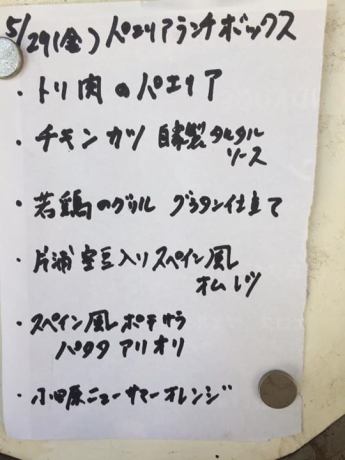 5/29(金)パエリアランチボックス
・トリ肉のパエリア
・チキンカツ 自家製タルタル
ソース
・若鶏のグリル グラタン仕立て
・片浦空豆入りスペイン風
オムレツ
・スペイン風ポテサラ
パタタ アリオリ
・小田原ニューサマーオレンジ